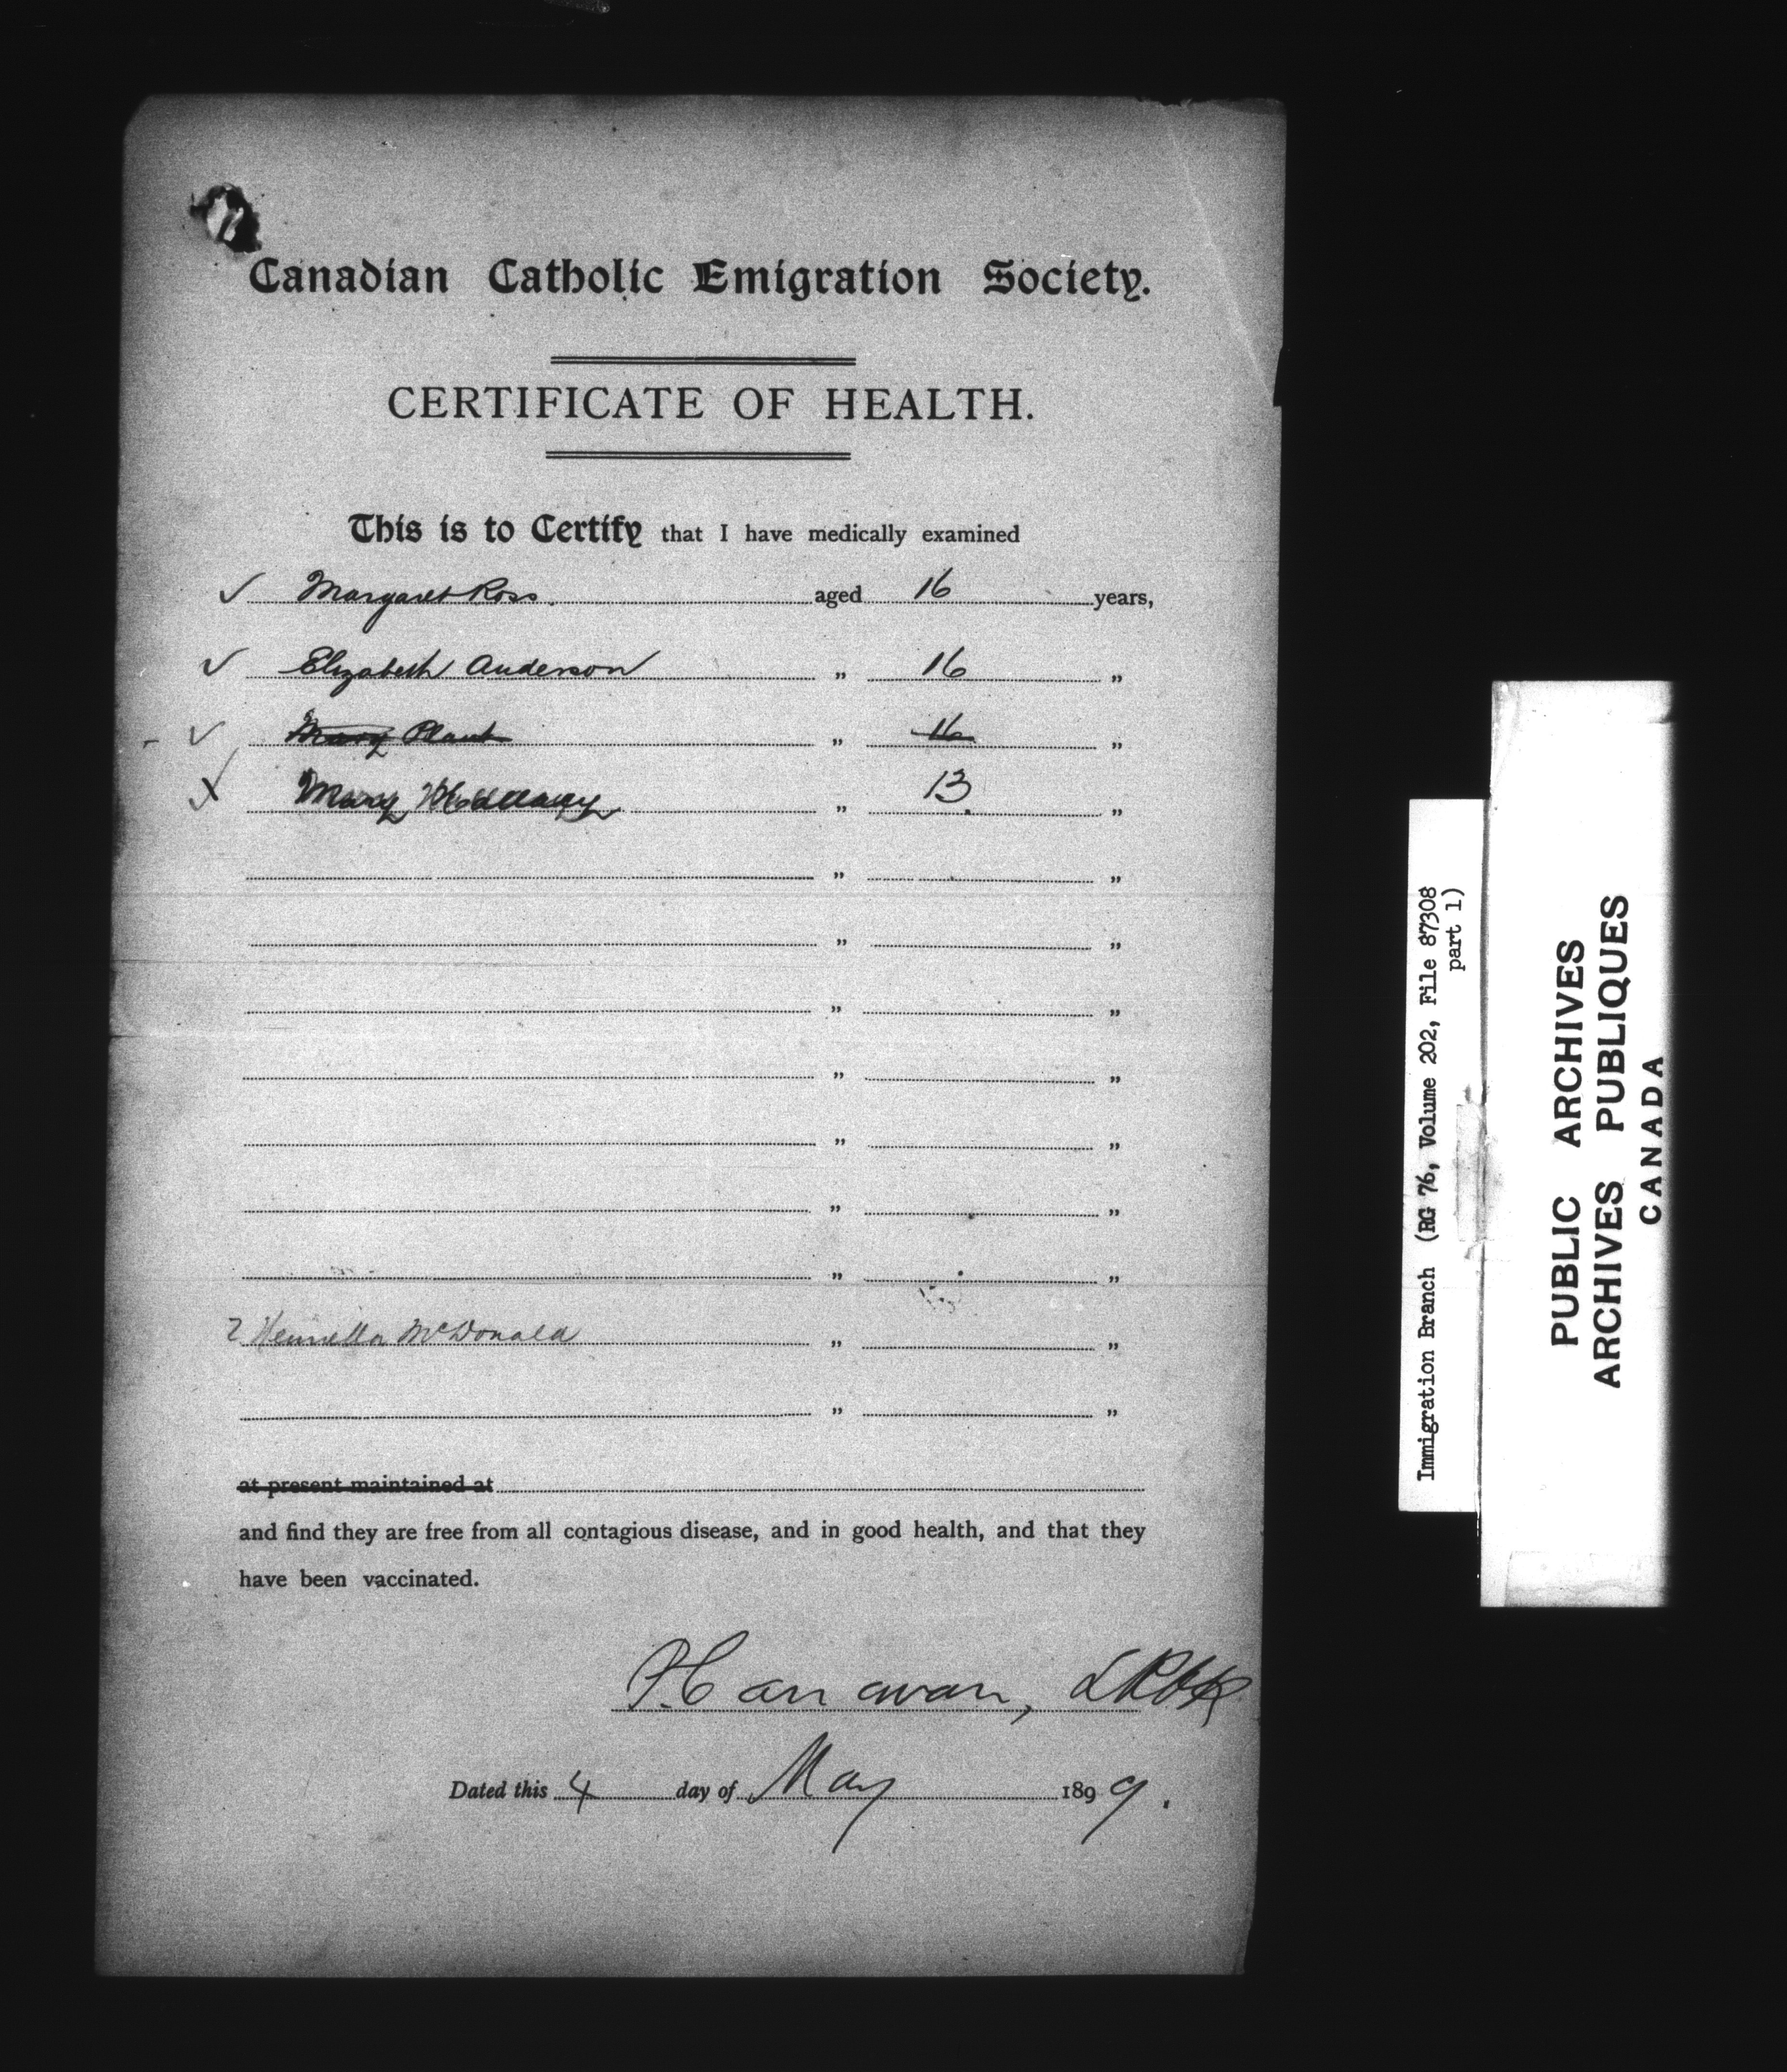 Canadian Catholic Emigration Society.
CERTIFICATE OF HEALTH.
This is to Certify that I have medically examined
✓ Margaret Ross. aged 16 years,
✓ Elizabeth Anderson " 16 "
- ✓ Mary Plant " 16 "
Mary " 13. "
" "
" "
" "
" "
" "
" "
" "
? Henrietta McDonald " "
" "
at present maintained at
and find they are free from all contagious disease, and in good health, and that they
have been vaccinated.
Dated this 4 day of May 1899.
Immigration Branch (RG 76, Volume 202, File 87308
part 1)
PUBLIC ARCHIVES
ARCHIVES PUBLIQUES
CANADA